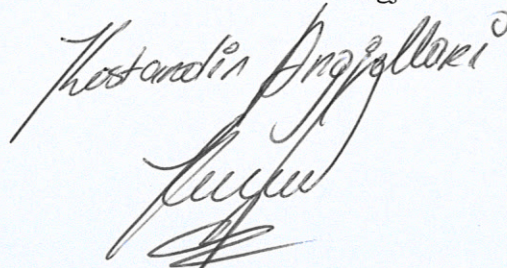 Kostandin Angjellari